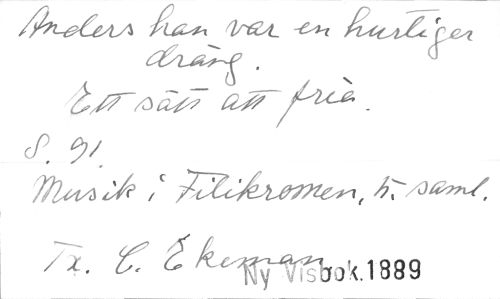 Anders han var en hurtiger
dräng.
Ett sätt att fria.
S. 91.
Musik i Filikromen, 5. saml.
Tx. C. Ekeman
Ny Visbok. 1889